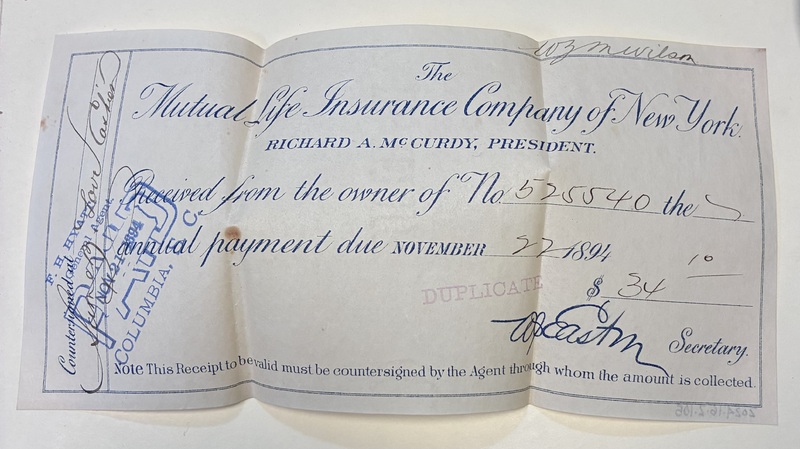 W J M Wilson
The
Mutual Life Insurance Company of New York.
RICHARD A. McCURDY, PRESIDENT.
Received from the owner of No. 525540 the
annual payment due NOVEMBER 22 1894
$ 34 10
DUPLICATE
Easton Secretary.
Note This Receipt to be valid must be countersigned by the Agent through whom the amount is collected.
Countersigned at
Love Cashier
F. H. HYATT
General Agent
PAID
NOV 21 1894
COLUMBIA, S. C.
2024.16.2.106